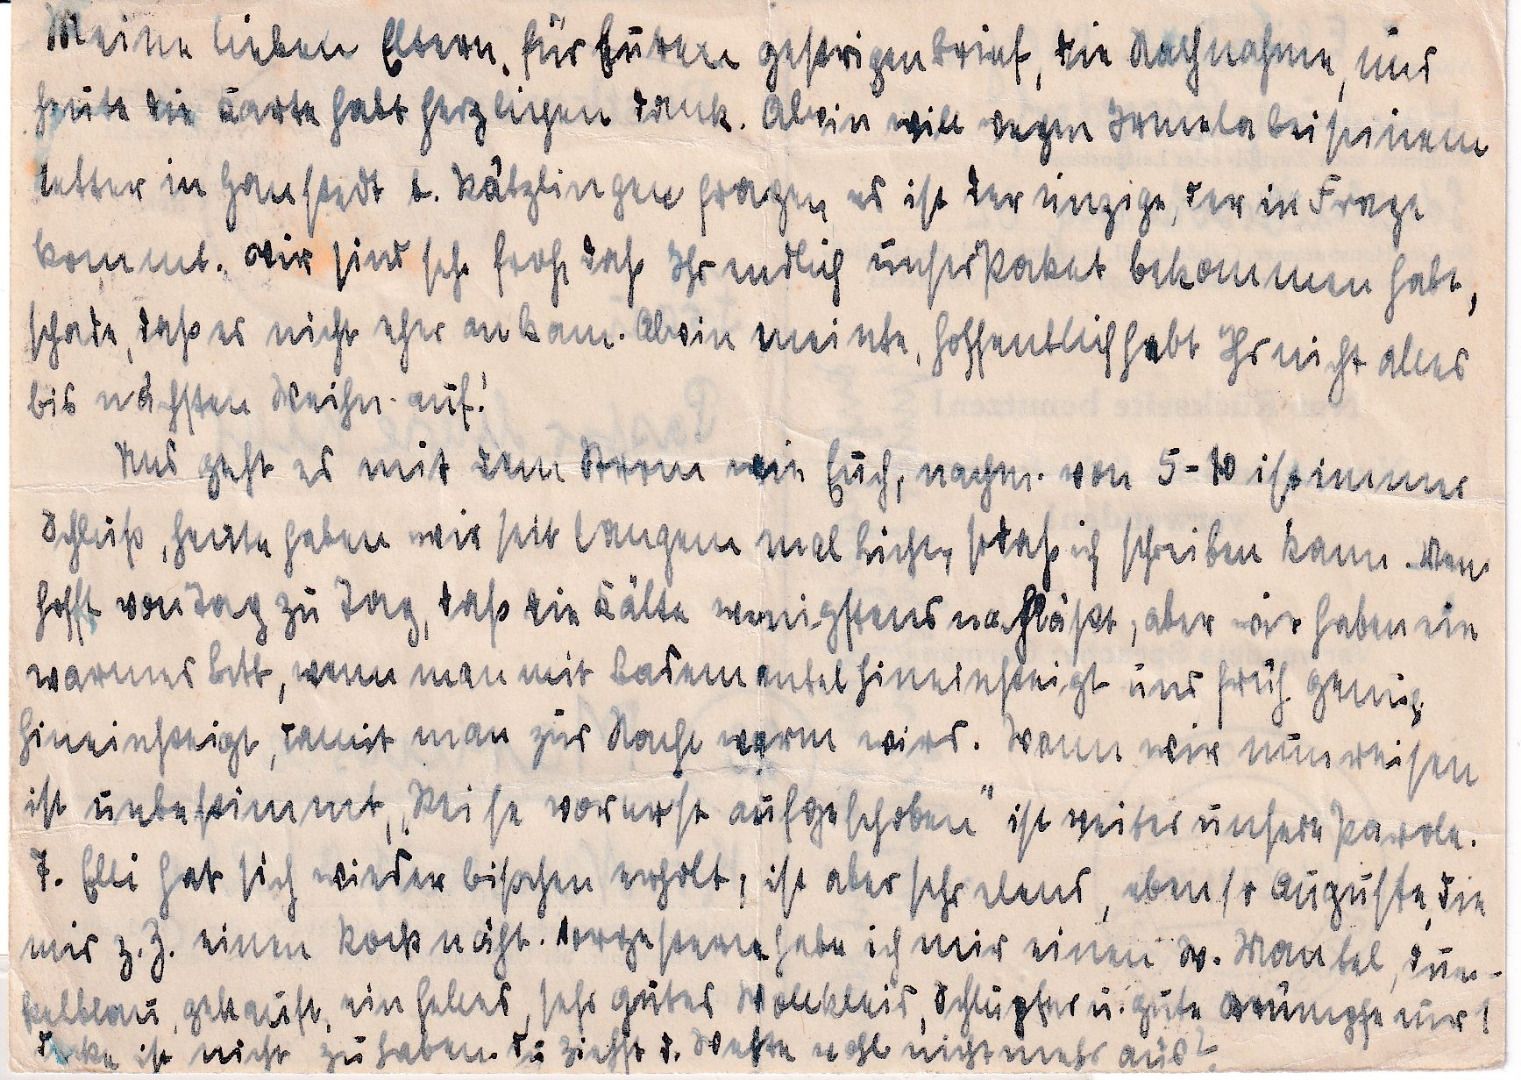 Meine lieben Eltern, für Euren gestrigen Brief, die Nachnahme, und
heute die Karte habt herzlichen Dank. Alwin will wegen Irmela bei seinem
Vetter in Hanstedt b. Kätzlingen fragen es ist der einzige, der in Frage
kommt. Wir sind sehr froh, daß Ihr endlich unser Paket bekommen habt,
schade, daß es nicht eher ankam. Alwin meinte, hoffentlich hebt Ihr nicht alles
bis nächsten Weihn. auf!
Uns geht es mit dem Strom wie Euch, nachm. von 5-10 ist immer
Schluß, heute haben wir seit langem mal Licht, sodaß ich schreiben kann. Man
hofft von Tag zu Tag, daß die Kälte wenigstens nachläßt, aber wir haben ein
warmes Bett, wenn man mit Bademantel hineinsteigt und früh genug
hineinsteigt, damit man zur Nacht warm wird. Wann wir nun reisen
ist unbestimmt, „Reise vorerst aufgeschoben" ist weiter unsere Parole.
T. Elli hat sich wieder bisschen erholt, ist aber sehr elend, ebenso Auguste, die
mir z. Z. einen Rock näht. Vorgestern habe ich mir einen W. Mantel, dun-
kelblau, gekauft, ein helles, sehr gutes Wollkleid, Schlupfer u. gute Strümpfe nur 1
Decke ist nicht zu haben. Du ziehst d. Weste wohl nicht mehr aus?